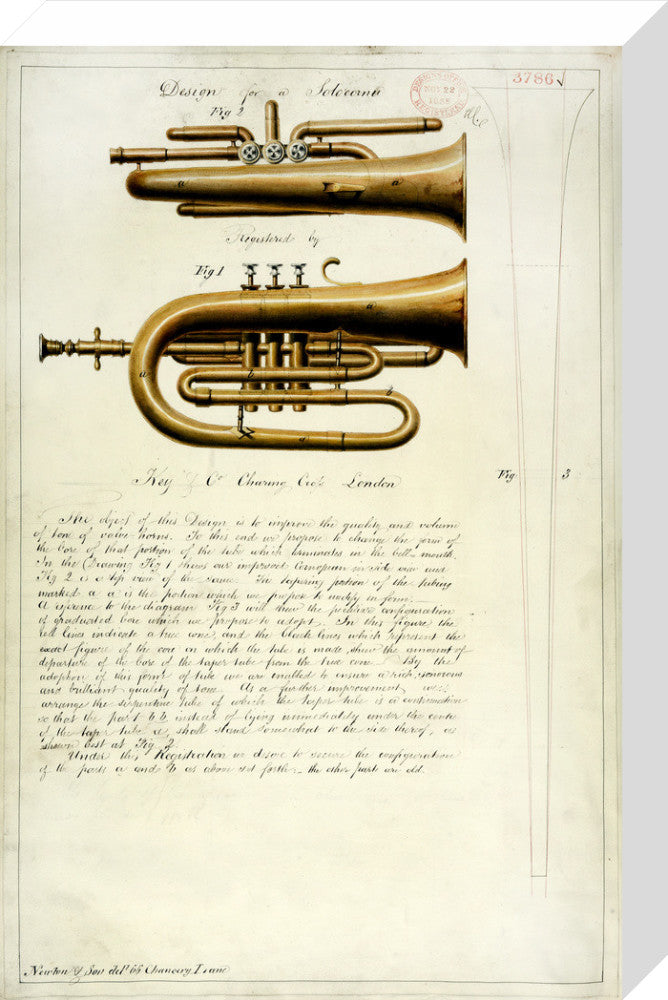 3786
Design for a Solo cornu
DESIGNS OFFICE
NOV 22
REGISTERED
Fig 2
a a
Registered by
Fig 1
a
a b b
a
Key & Co Charing Cross London
Fig. 3
The object of this Design is to improve the quality and volume
of tone of valve horns. To this end we propose to change the form of
the bore of that portion of the tube which terminates in the bell mouth.
In the Drawing Fig 1 shews our improved Cornopean in side view and
Fig 2 is a top view of the same. The tapering portion of the tubing
marked a a is the portion which we propose to modify in form.
A reference to the diagram Fig 3 will shew the peculiar configuration
of graduated bore which we propose to adopt. In this figure the
red lines indicate a true cone, and the black lines which represent the
exact figure of the core on which the tube is made, shew the amount of
departure of the bore of the taper tube from the true cone. By the
adoption of this form of tube we are enabled to ensure a rich, sonorous
and brilliant quality of tone. As a further improvement we
arrange the serpentine tube of which the taper tube is a continuation
so that the part b b, instead of lying immediately under the center
of the taper tube a, shall stand somewhat to the side thereof, as
shewn best at Fig 2.
Under this Registration we desire to secure the configuration
of the parts a and b as above set forth; - the other parts are old.
Newton & Son delt 66 Chancery Lane